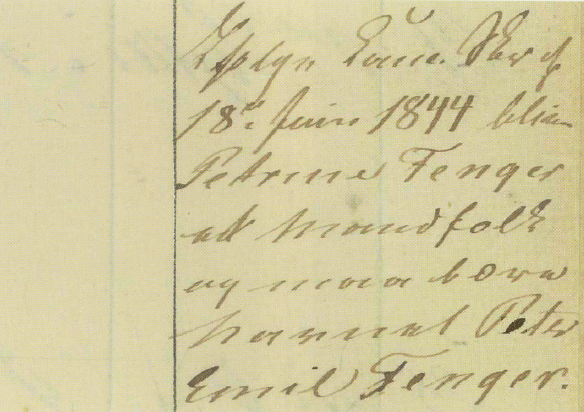 Ifølge Canc. Skr. af
18de Juni 1844 blev
Petrine Fenger
et Mandfolk
og maa bære
Navnet Peter
Emil Fenger.